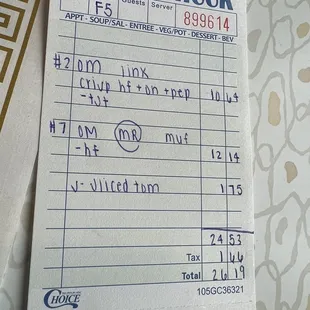 F5 Guests Server
899614
APPT - SOUP/SAL - ENTREE - VEG/POT - DESSERT - BEV
#2 OM link
crisp hf + on + pep 10 64
- tst
#7 OM MR muf
- hf 12 14
J - sliced tom 1 75
24 53
Tax 1 66
Total 26 19
CHOICE 105GC36321